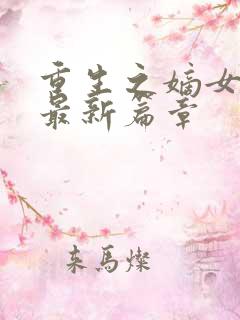 重生之嫡女
最新篇章
来马燦